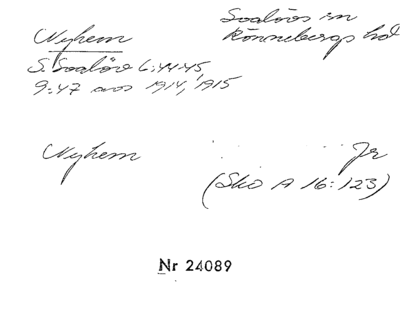 Nyhem
Svalövs sn
Rönnebergs hd
S. Svalöv 6:44-45,
9:47 avs 1914, 1915
Nyhem Jr
(Sko A 16:123)
Nr 24089